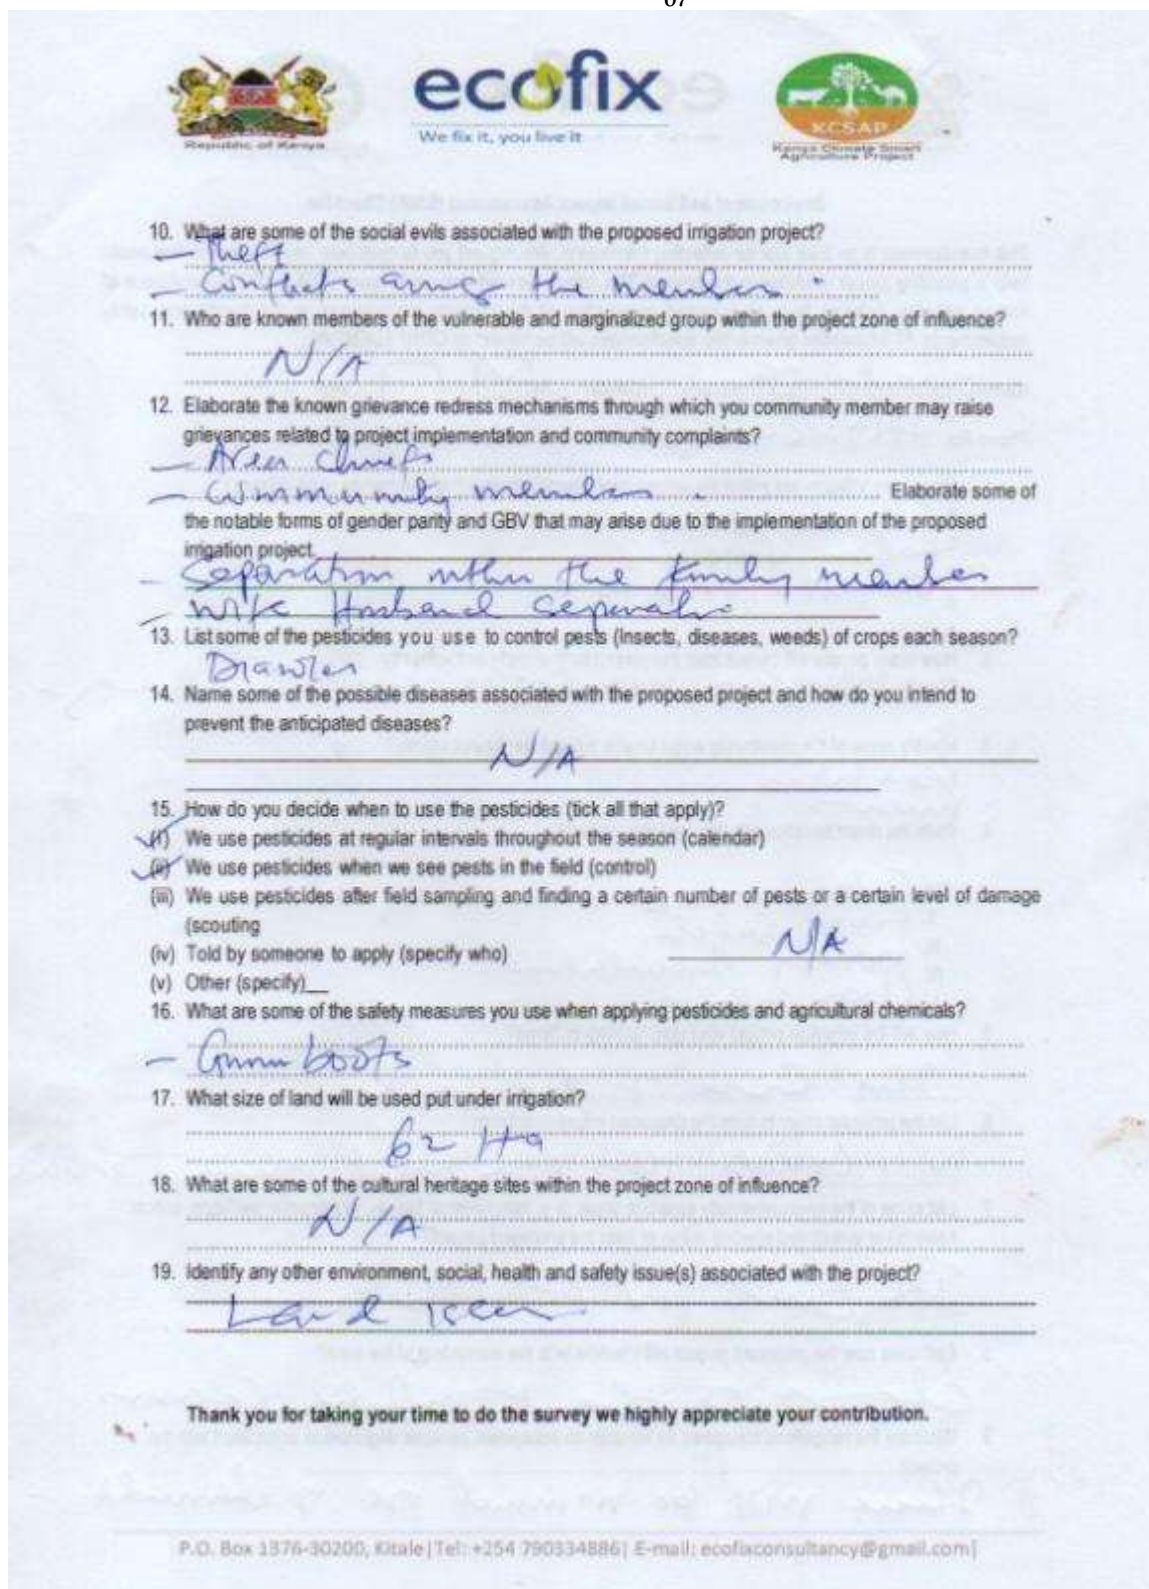 67
ecofix
We fix it, you live it
Republic of Kenya
KCSAP
Kenya Climate Smart
Agriculture Project
10. What are some of the social evils associated with the proposed irrigation project?
- Theft
- Conflicts among the members.
11. Who are known members of the vulnerable and marginalized group within the project zone of influence?
N/A
12. Elaborate the known grievance redress mechanisms through which you community member may raise
grievances related to project implementation and community complaints?
- Area Chiefs
- Community members. Elaborate some of
the notable forms of gender parity and GBV that may arise due to the implementation of the proposed
irrigation project.
- Separation within the family member
- Wife Husband separatio
13. List some of the pesticides you use to control pests (Insects, diseases, weeds) of crops each season?
14. Name some of the possible diseases associated with the proposed project and how do you intend to
prevent the anticipated diseases?
N/A
15. How do you decide when to use the pesticides (tick all that apply)?
(i) We use pesticides at regular intervals throughout the season (calendar)
(ii) We use pesticides when we see pests in the field (control)
(iii) We use pesticides after field sampling and finding a certain number of pests or a certain level of damage
(scouting
(iv) Told by someone to apply (specify who) N/A
(v) Other (specify)__
16. What are some of the safety measures you use when applying pesticides and agricultural chemicals?
- Gum boots
17. What size of land will be used put under irrigation?
62 Ha
18. What are some of the cultural heritage sites within the project zone of influence?
N/A
19. Identify any other environment, social, health and safety issue(s) associated with the project?
Land
Thank you for taking your time to do the survey we highly appreciate your contribution.
P.O. Box 1376-30200, Kitale|Tel: +254 790334886| E-mail: ecofixconsultancy@gmail.com|